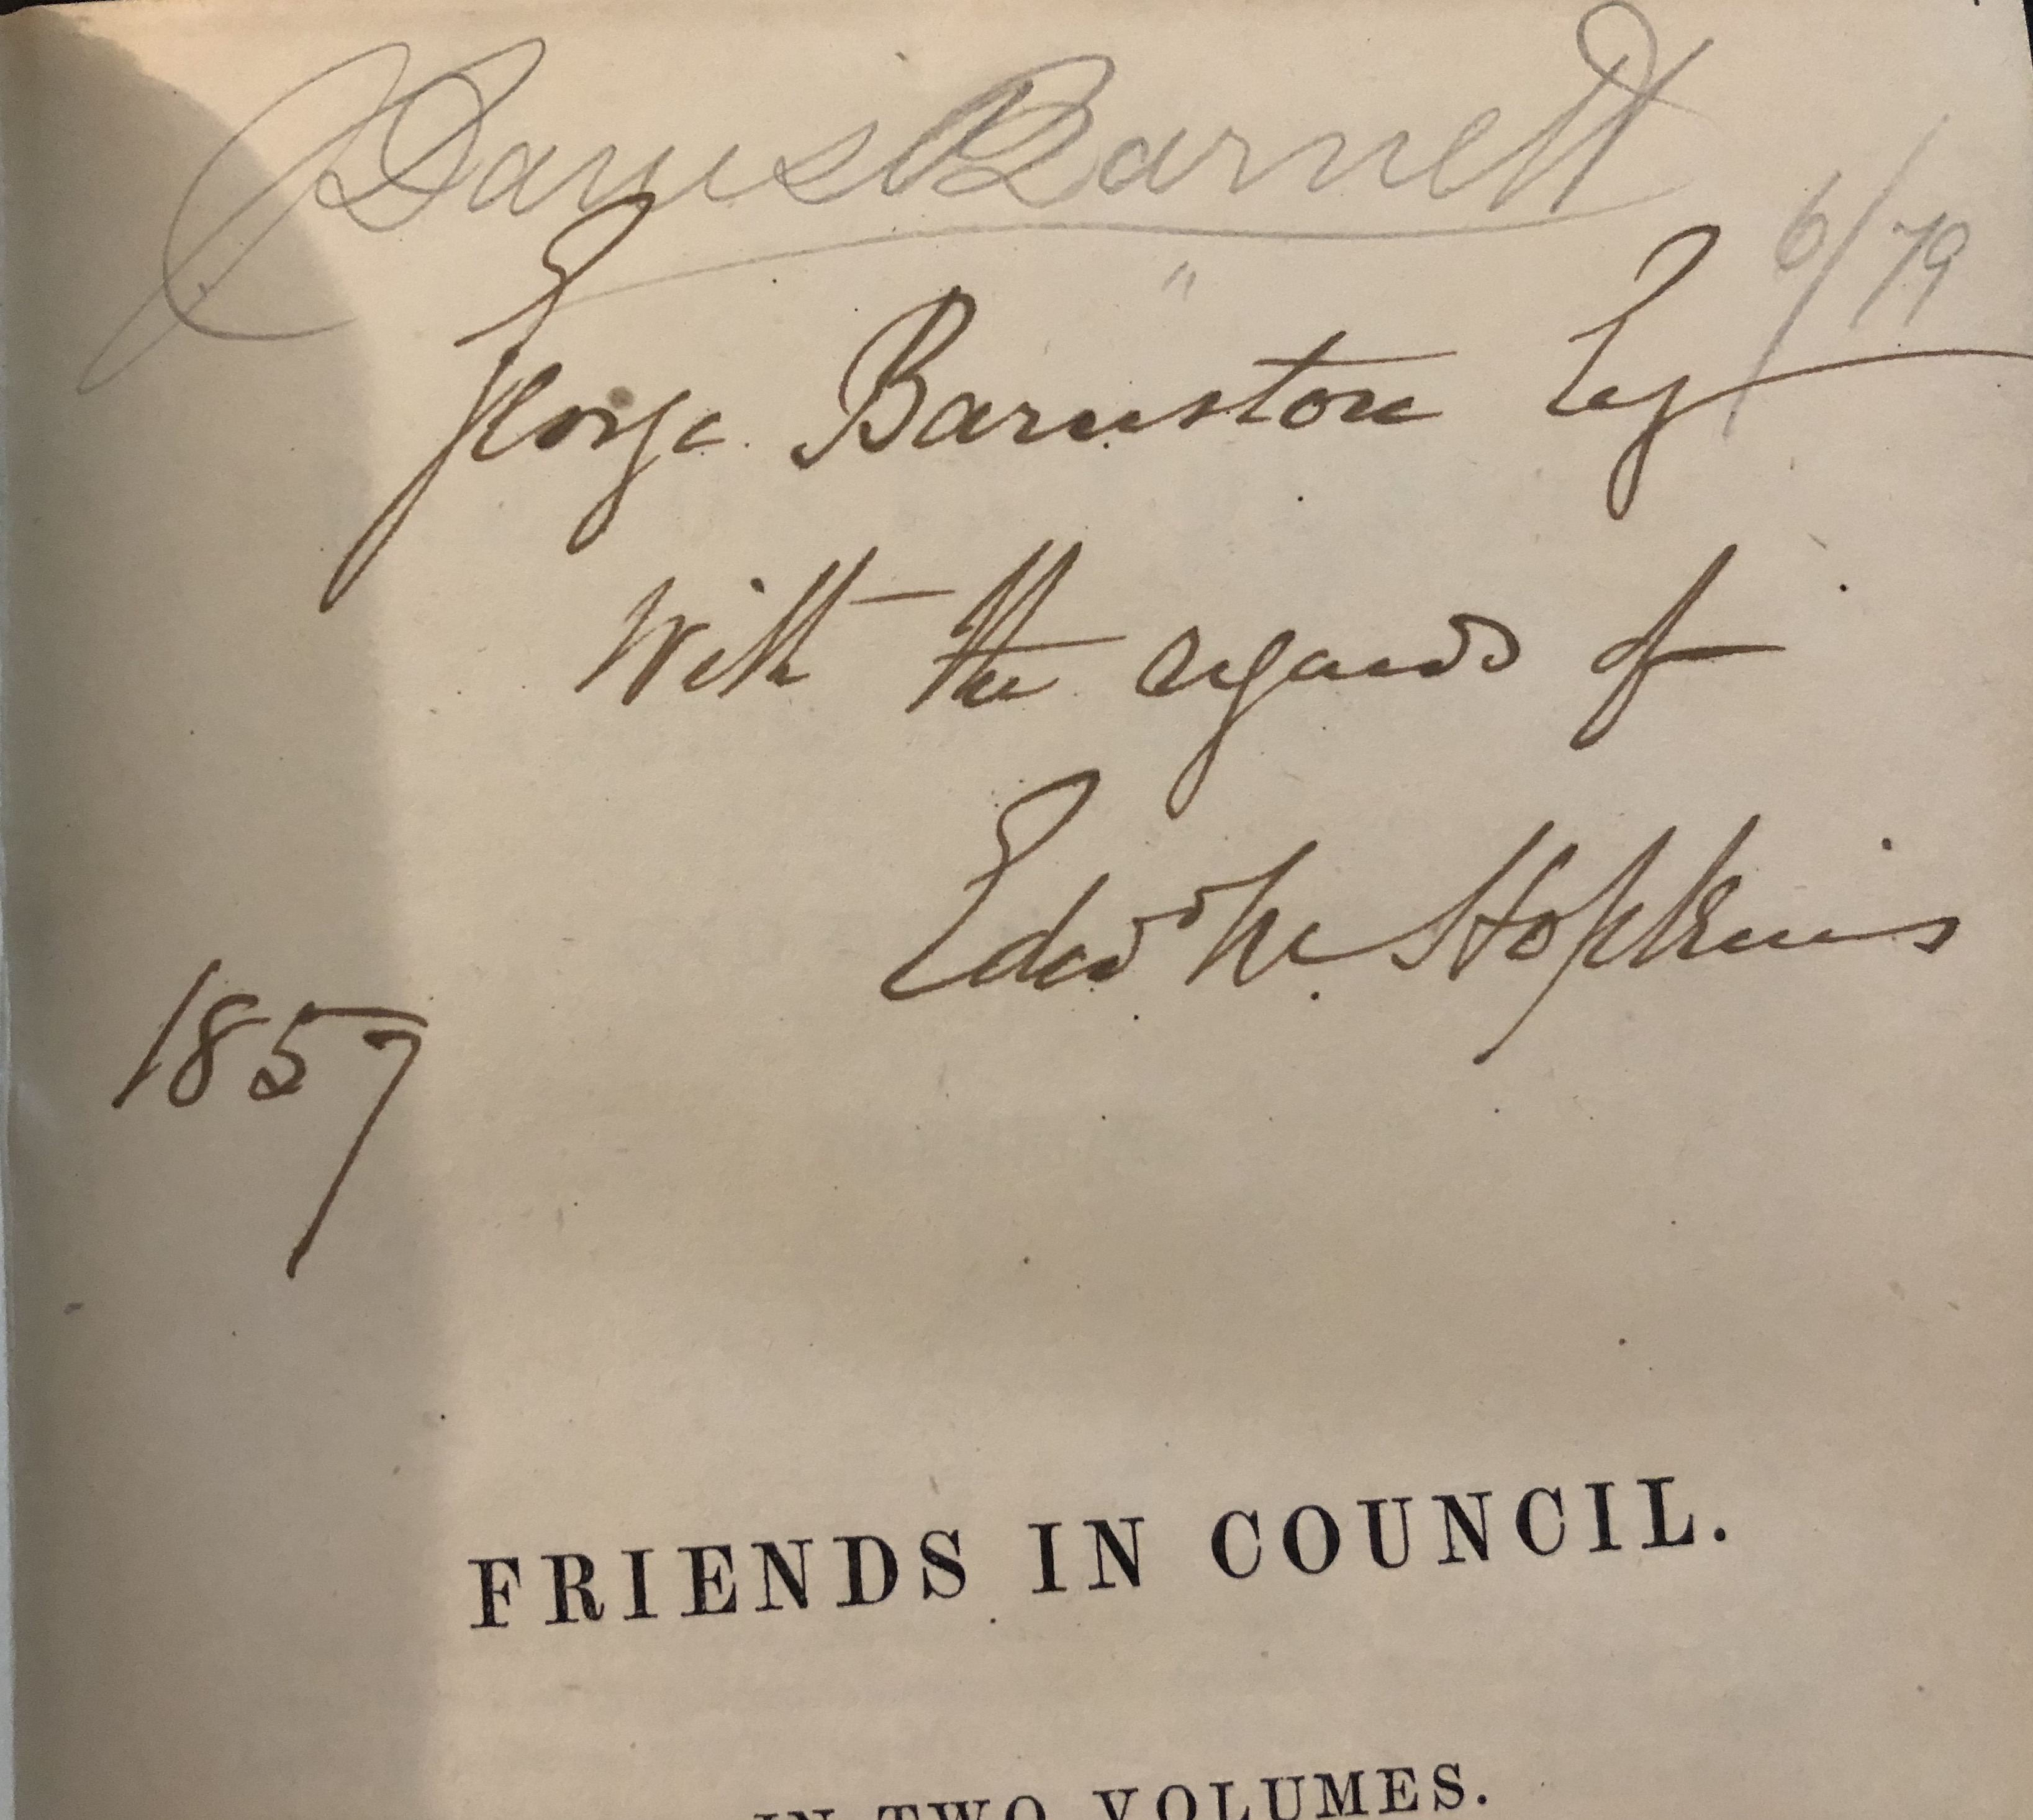 J Davis Barnett
6/79
George Barnston Esq
With the regards of
Edwd M. Hopkins
1857
FRIENDS IN COUNCIL.
IN TWO VOLUMES.